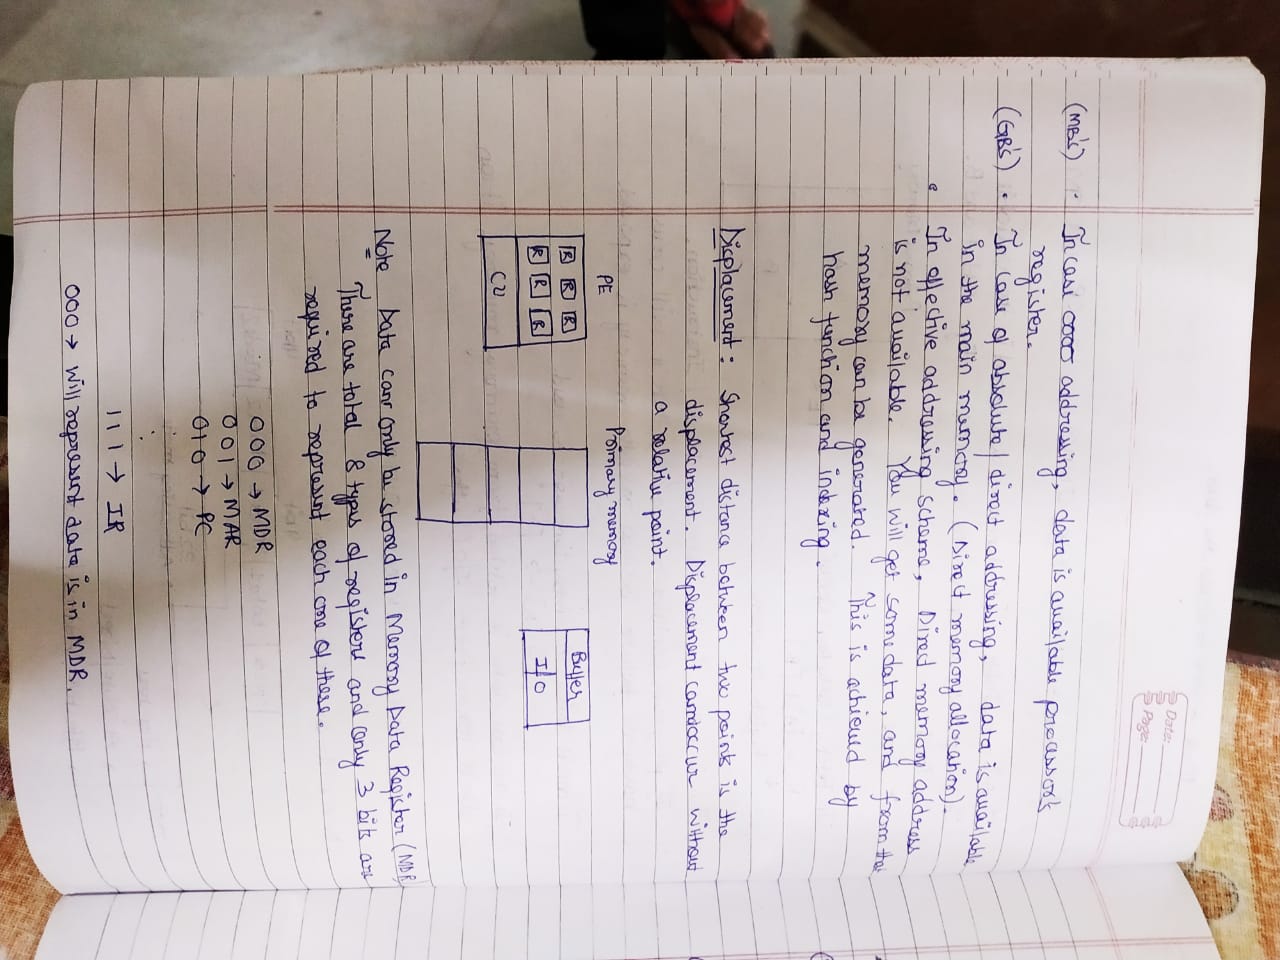 Date:
Page:
(MB's) • In case addressing, data is available processor's
register.
(GB's) • In case of absolute/direct addressing, data is available
in the main memory. (Direct memory allocation).
• In effective addressing scheme, Direct memory address
is not available. You will get some data, and from that
memory can be generated. This is achieved by
hash function and indexing.
Displacement: Shortest distance between two points is the
displacement. Displacement can occur without
a relative point.
PE Primary memory
R R R
R R R
CU
Buffer
I/O
Note Data can only be stored in Memory Data Register (MDR)
There are total 8 types of registers and only 3 bits are
required to represent each one of these.
000 → MDR
001 → MAR
010 → PC
:
111 → IR
000 → will represent data is in MDR.